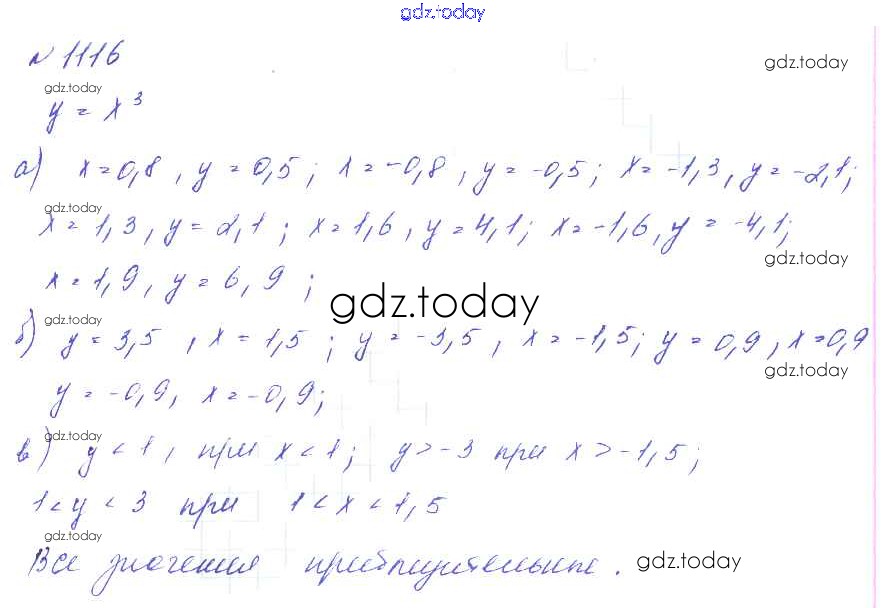 gdz.today
№ 1116
gdz.today
gdz.today
y = x³
а) x = 0,8, y = 0,5; x = -0,8, y = -0,5; x = -1,3, y = -2,1;
gdz.today
x = 1,3, y = 2,1; x = 1,6, y = 4,1; x = -1,6, y = -4,1;
gdz.today
x = 1,9, y = 6,9;
gdz.today
б) y = 3,5, x = 1,5; y = -3,5, x = -1,5; y = 0,9, x = 0,9
gdz.today
y = -0,9, x = -0,9;
gdz.today
в) y < 1, при x < 1; y > -3 при x > -1,5;
1 < y < 3 при 1 < x < 1,5
gdz.today
Все значения приблизительные.
gdz.today